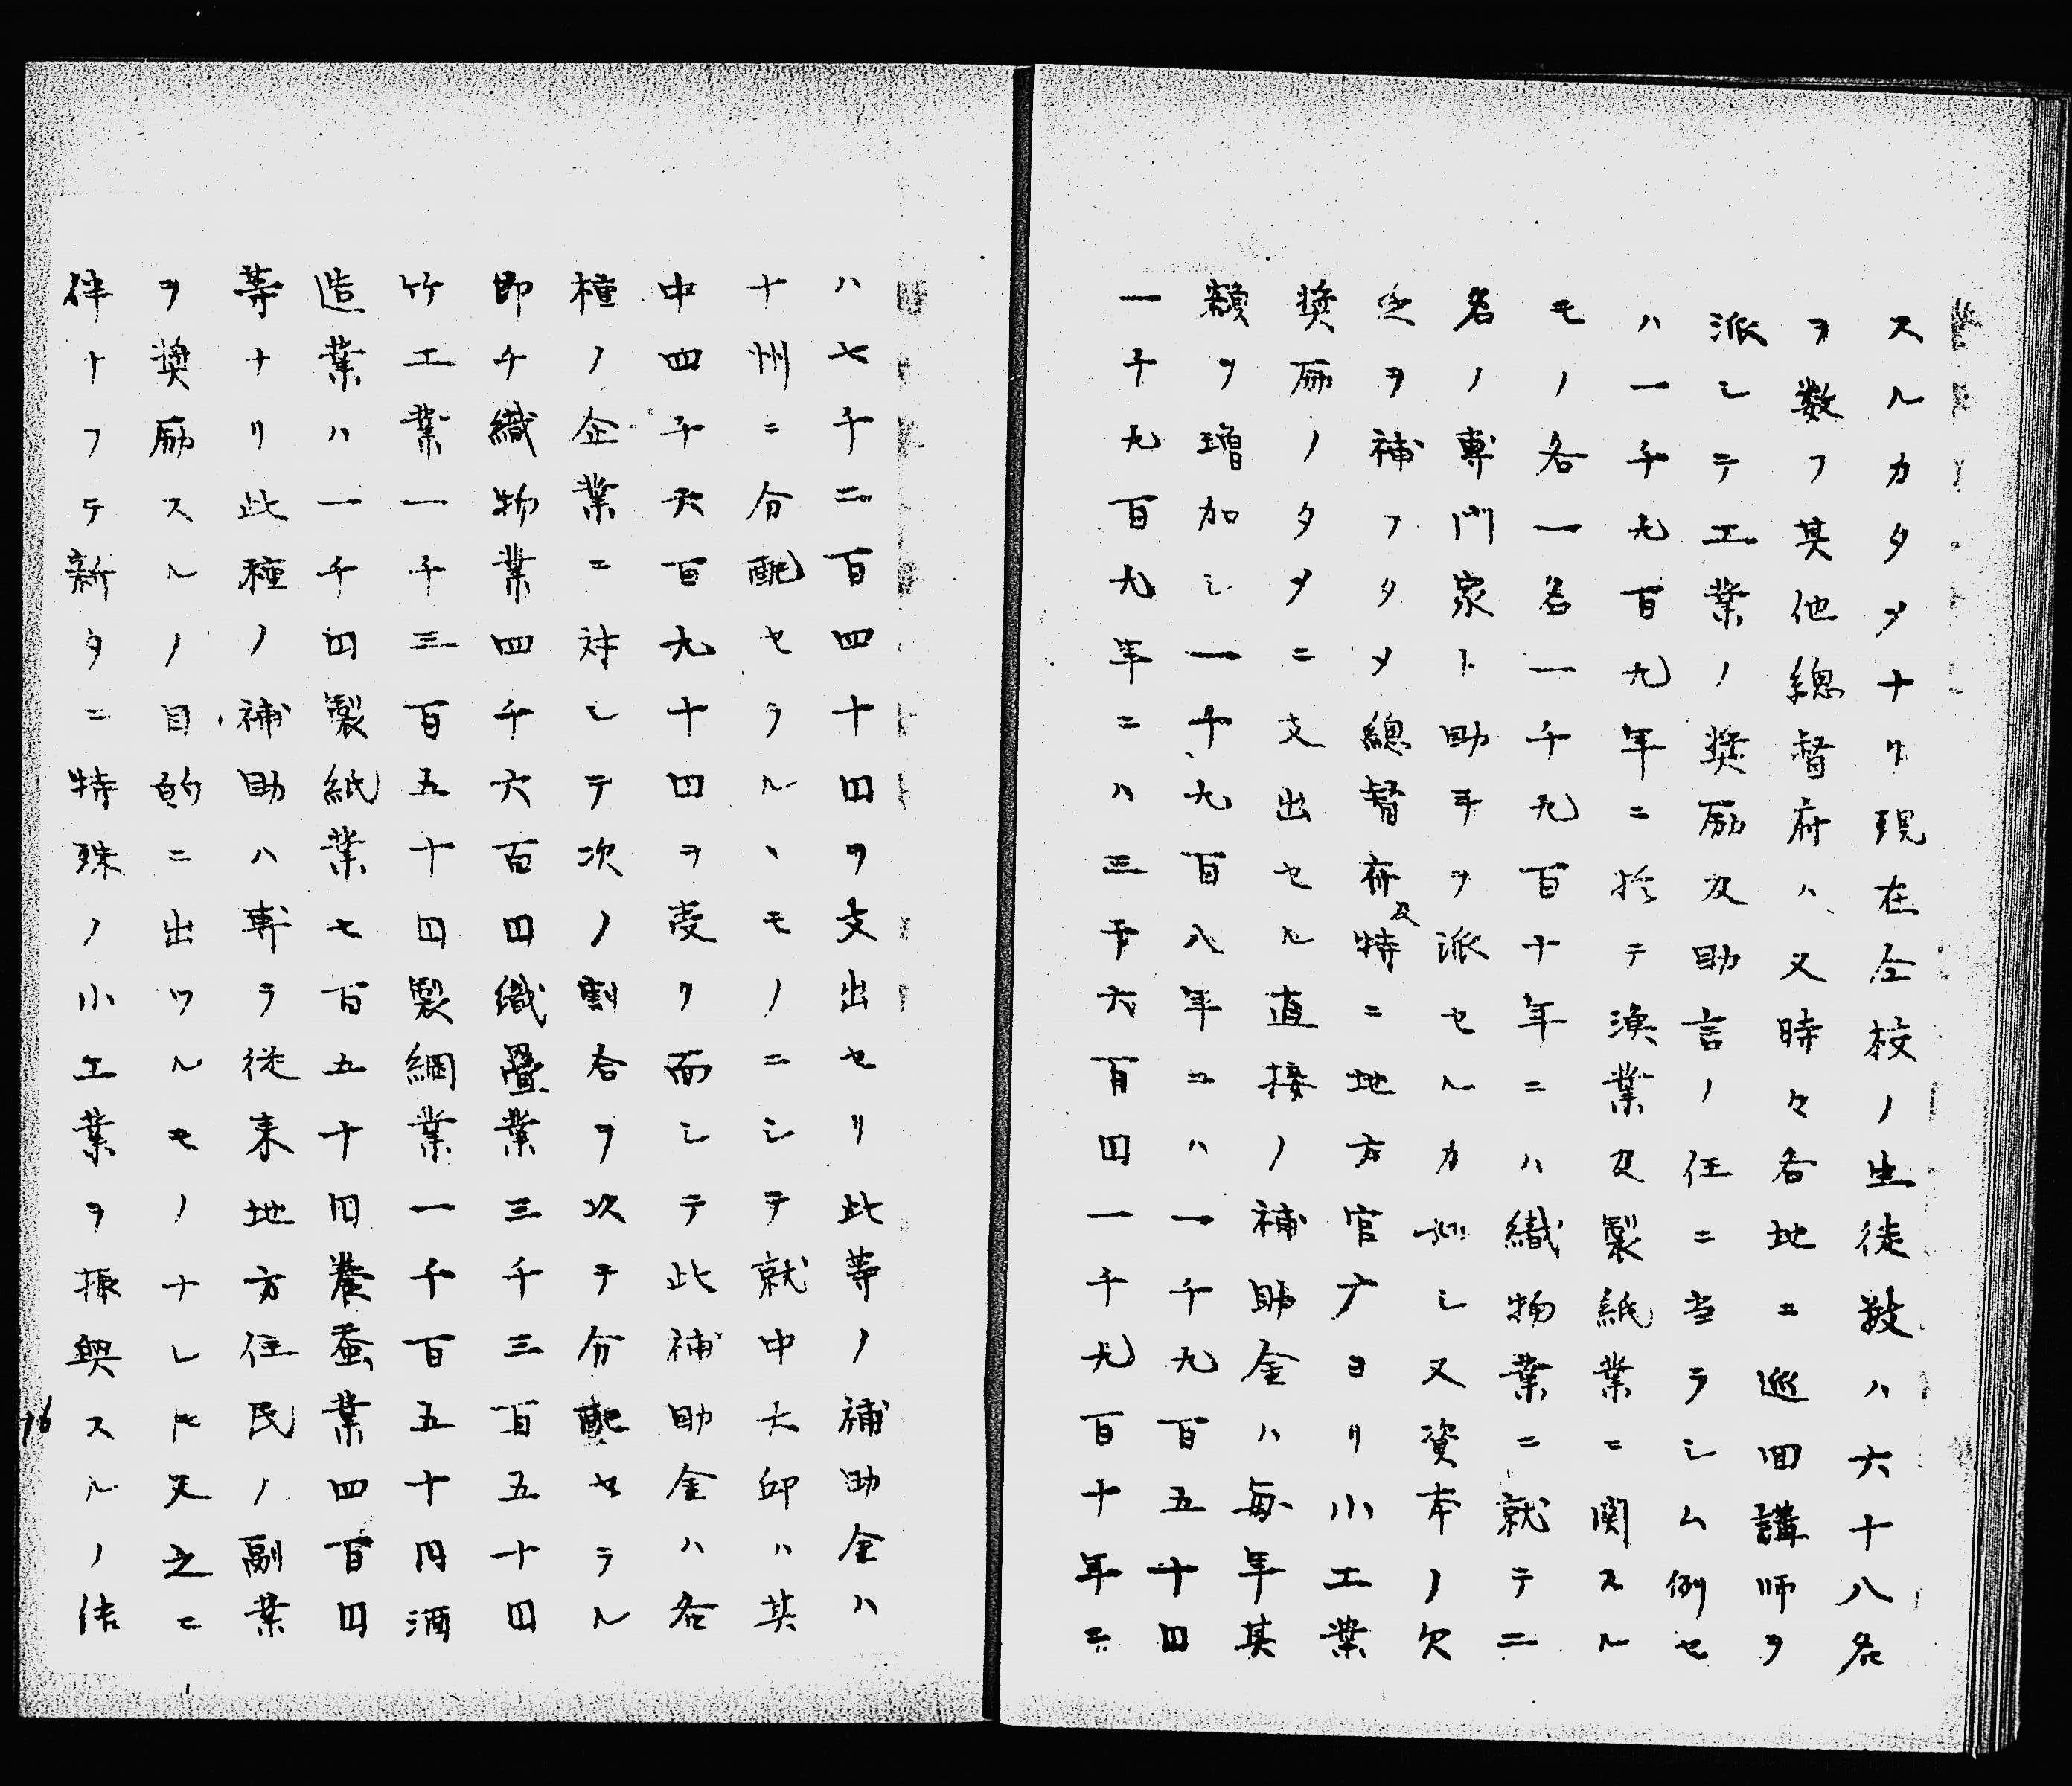 スルカタメナリ現在仝校ノ生徒数ハ六十八名
ヲ数フ其他總督府ハ又時々各地ニ巡回講師ヲ
派シテ工業ノ奨励及助言ノ任ニ当ラシム例セ
ハ一千九百九年ニ於テ漁業及製紙業ニ関スル
モノ各一名一千九百十年ニハ織物業ニ就テ二
名ノ専門家ト助手ヲ派セルカ如シ又資本ノ欠
乏ヲ補フタメ總督府及特ニ地方官庁ヨリ小工業
奨励ノタメニ支出セル直接ノ補助金ハ毎年其
額ヲ増加シ一千九百八年ニハ一千九百五十円
一千九百九年ニハ三千六百円一千九百十年ニ
ハ七千二百四十円ヲ支出セリ此等ノ補助金ハ
十州ニ分配セラルヽモノニシテ就中大邱ハ其
中四千六百九十円ヲ受ケ而シテ此補助金ハ各
種ノ企業ニ対シテ次ノ割合ヲ以テ分配セラル
即チ織物業四千六百円織疊業三千三百五十円
竹工業一千三百五十円製網業一千百五十円酒
造業ハ一千円製紙業七百五十円養蚕業四百円
等ナリ此種ノ補助ハ専ラ従来地方住民ノ副業
ヲ奨励スルノ目的ニ出ツルモノナレトモ又之ニ
伴トフテ新タニ特殊ノ小工業ヲ振興スルノ結
76